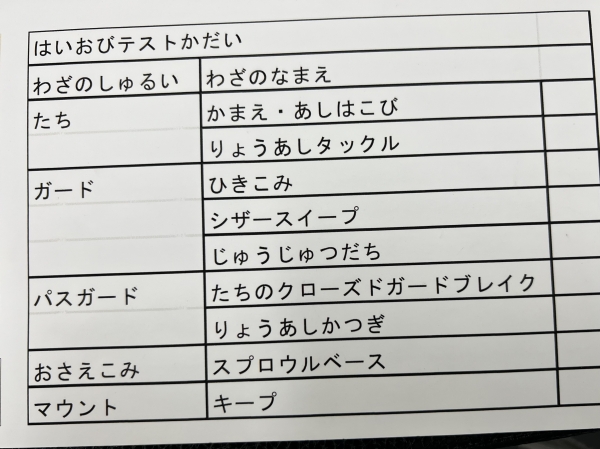 はいおびテストかだい
わざのしゅるい わざのなまえ
たち かまえ・あしはこび
りょうあしタックル
ガード ひきこみ
シザースイープ
じゅうじゅつだち
パスガード たちのクローズドガードブレイク
りょうあしかつぎ
おさえこみ スプロウルベース
マウント キープ